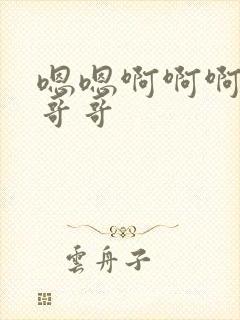 嗯嗯啊啊啊
哥哥
雲舟子